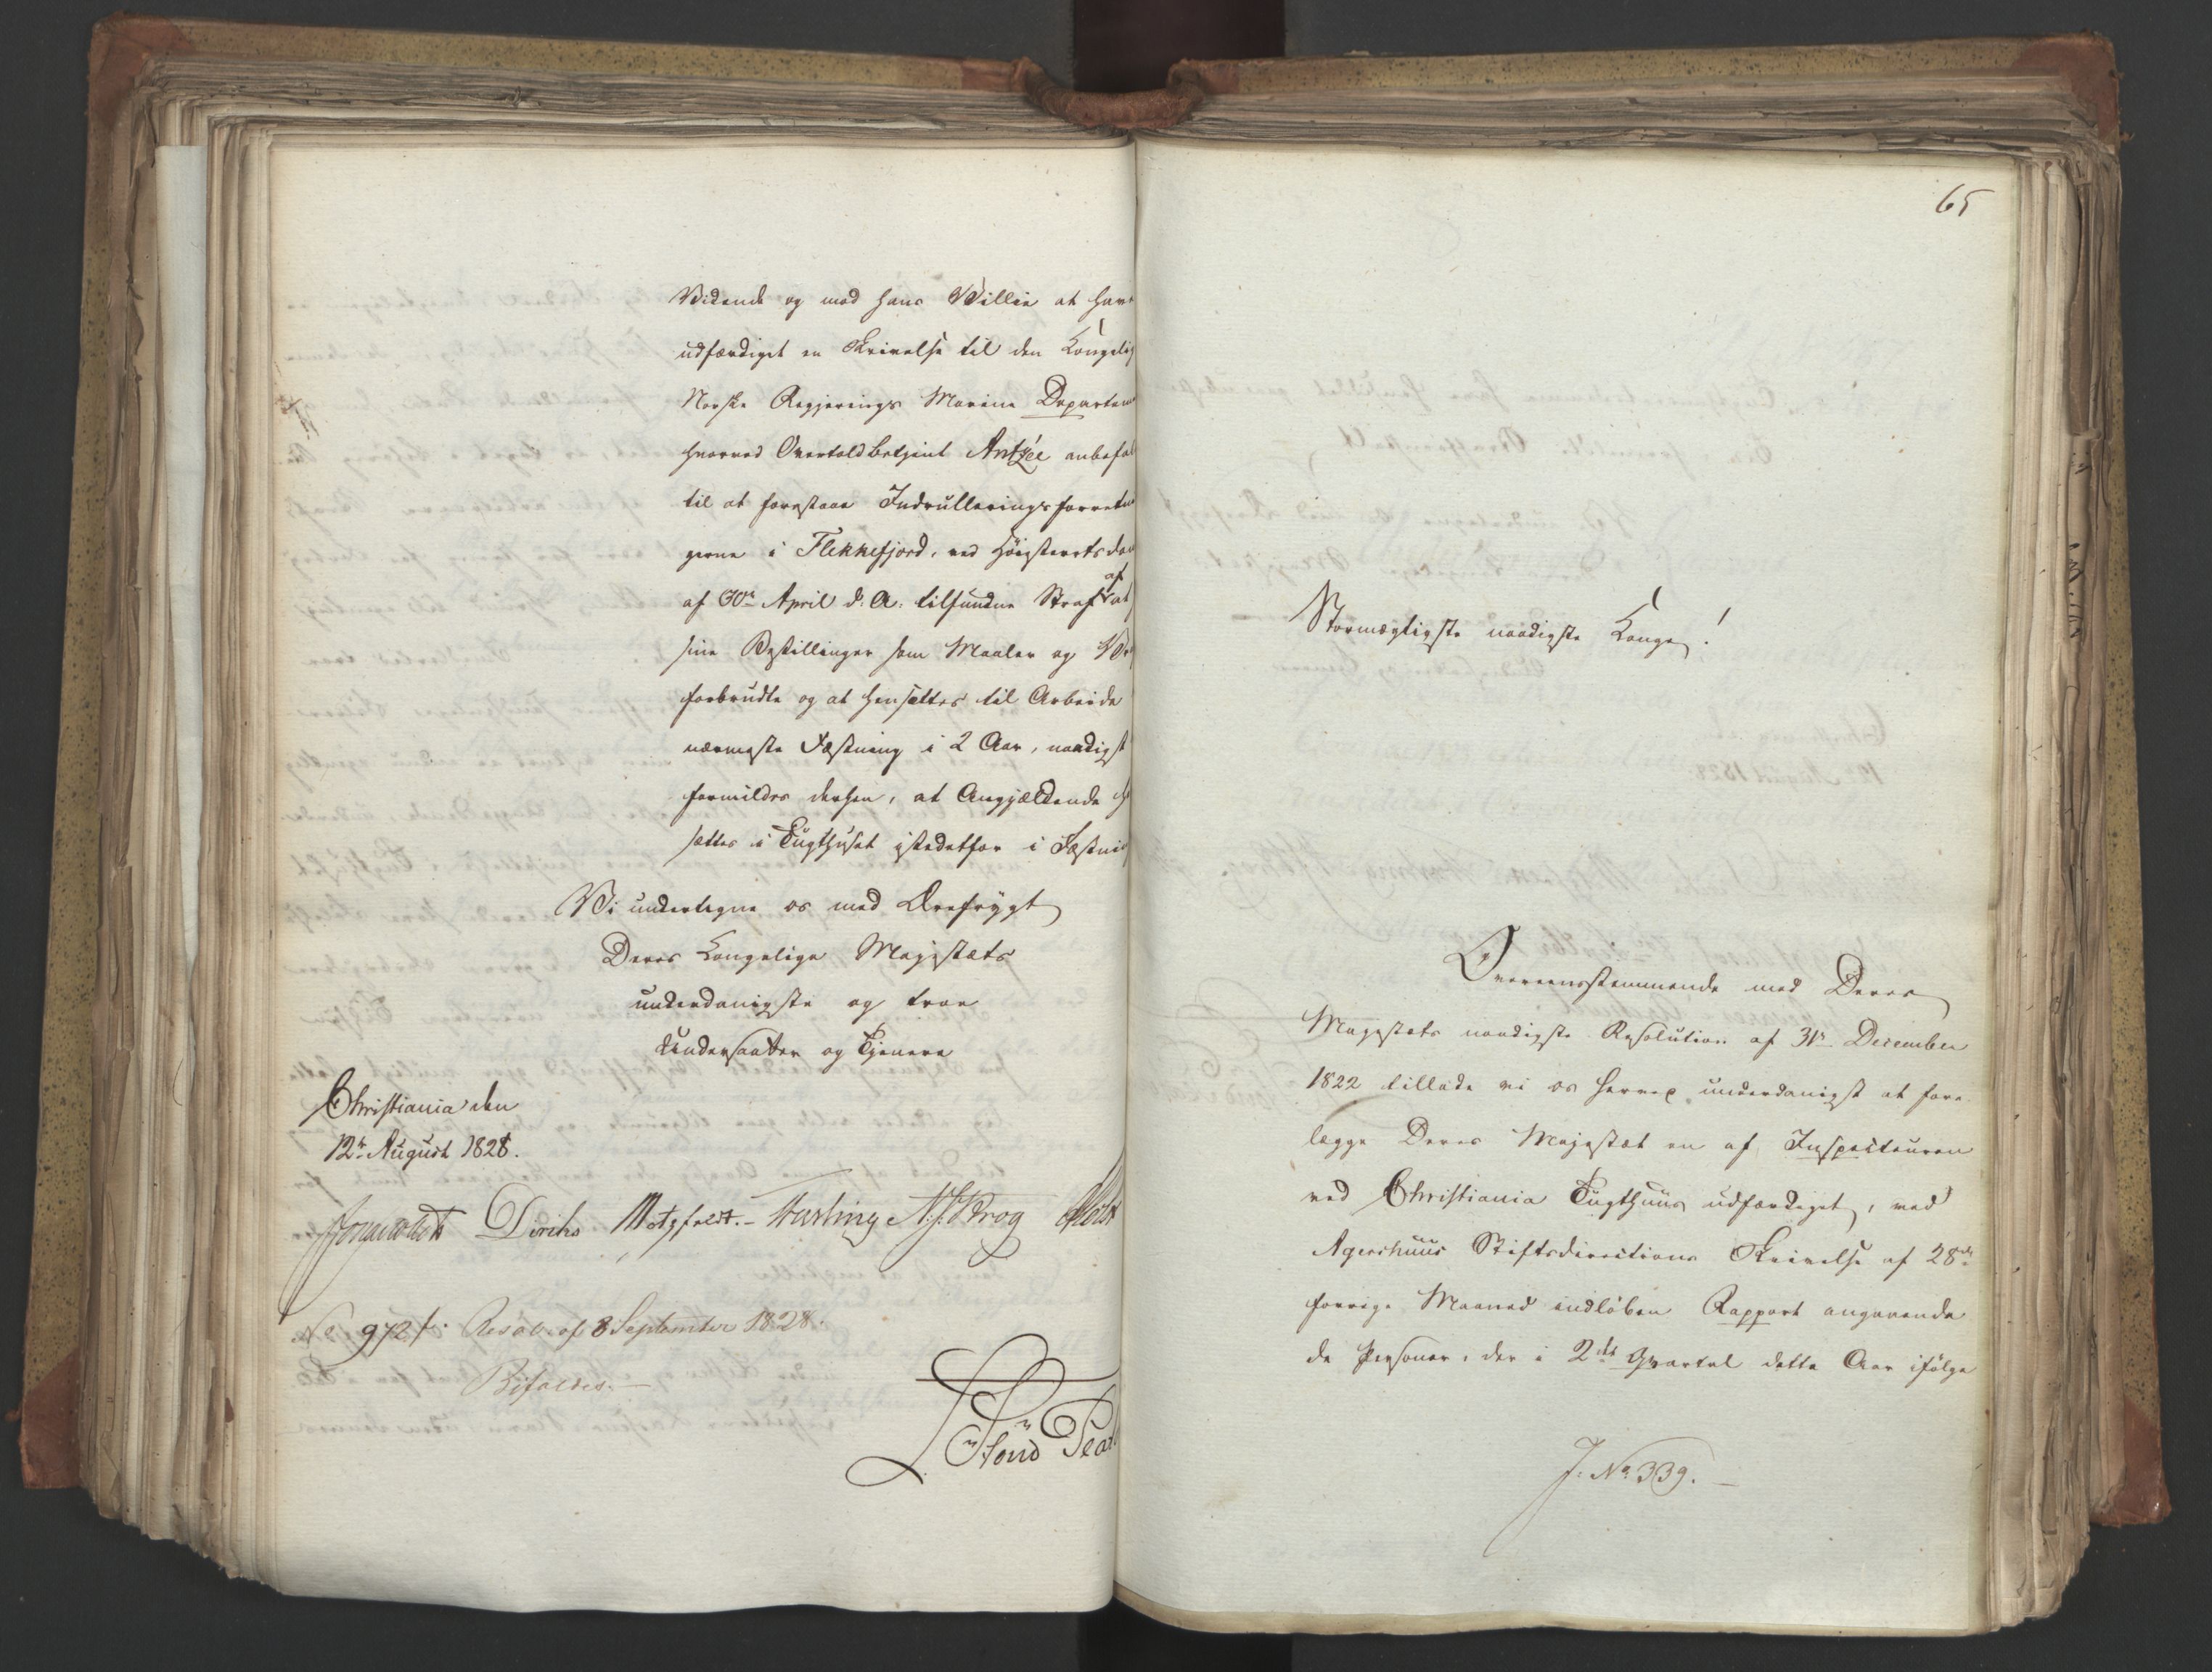 Vidende og mod hans Villie at have
udfærdiget en Skrivelse til den Kongelig
Norske Regjerings Marine Departem
hvorved Overtoldbetjent Antzée anbefal
til at forestaae Indrulleringsforretn
gerne i Flekkefjord, ved Høiesteretsdom
af 30te April d: A: tilfundne Straf af at
sine Bestillinger som Maaler og
forbrudte og at hensættes til Arbeide
nærmeste Fæstning i 2 Aar, naadigst
formildes derhen, at Angjældende
sættes i Tugthuset istedetfor i Fæstni
Vi undertegne os med Ærefrygt
Deres Kongelige Majestæts
underdanigste og troe
Undersaatter og Tjenere
Christiania den
12te August 1828.
Diriks Motzfeldt. N. J. Krog Holst
No 972/. Resol. af 8 September 1828.
Bifaldes.
65
Stormægtigste naadigste Konge!
Overeensstemmende med Deres
Majestæts naadigste Resolution af 31te December
1822 tillade vi os herved underdanigst at fore
lægge Deres Majestæt en af Inspecteuren
ved Christiania Tugthuus udfærdiget, med
Agershuus Stiftsdirections Skrivelse af 28de
forrige Maaned indløben Rapport angaaende
de Personer, der i 2det Qvartal dette Aar ifølge
J: No 339.